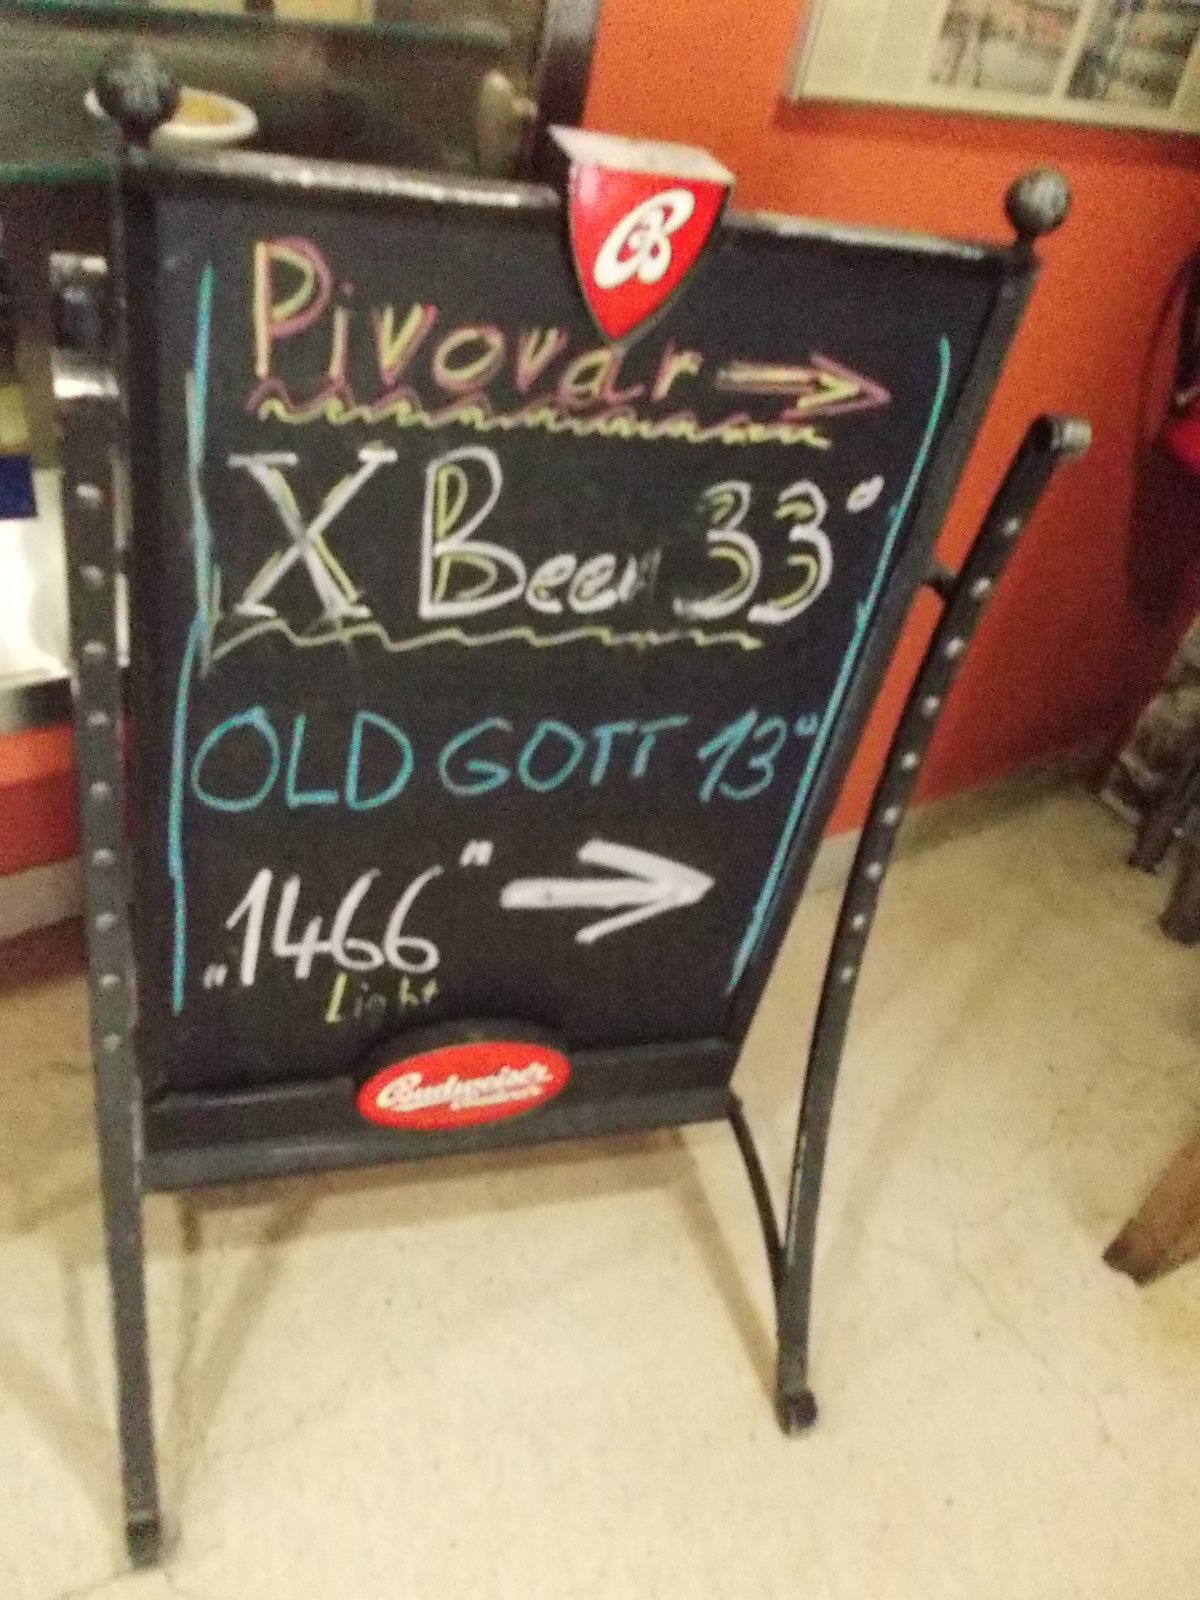 B
Pivovar →
X Beer 33"
OLD GOTT 13"
„1466" →
Light
Budweiser